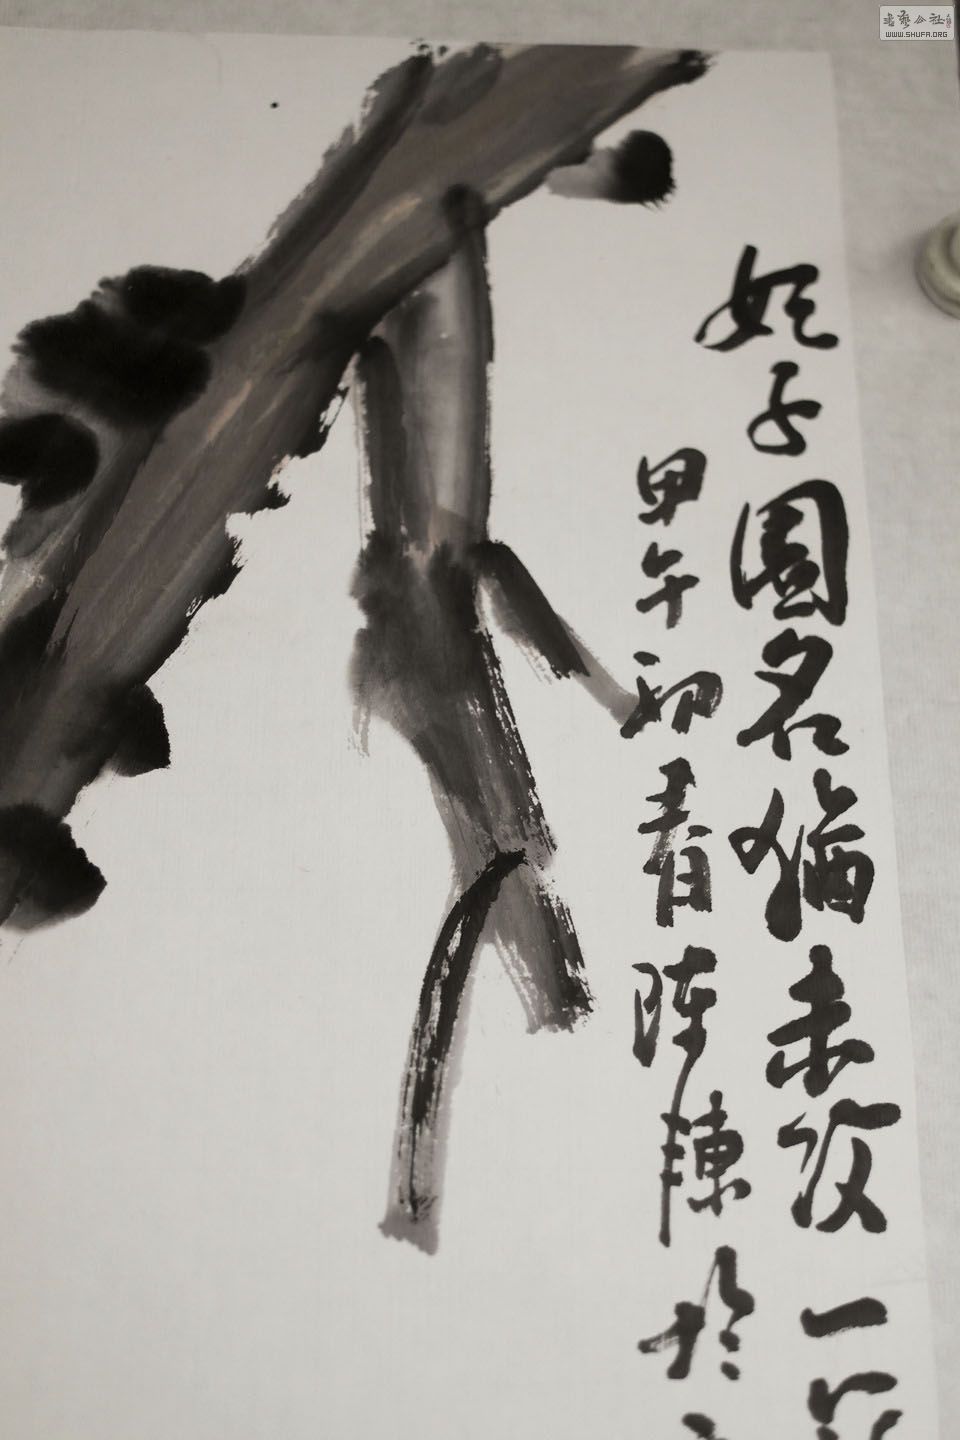 書藝公社
WWW.SHUFA.ORG
妃子園名猶未改一
甲午初春阵陳於